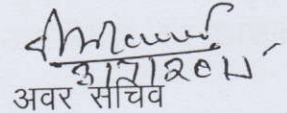 3/7/2015
अवर सचिव